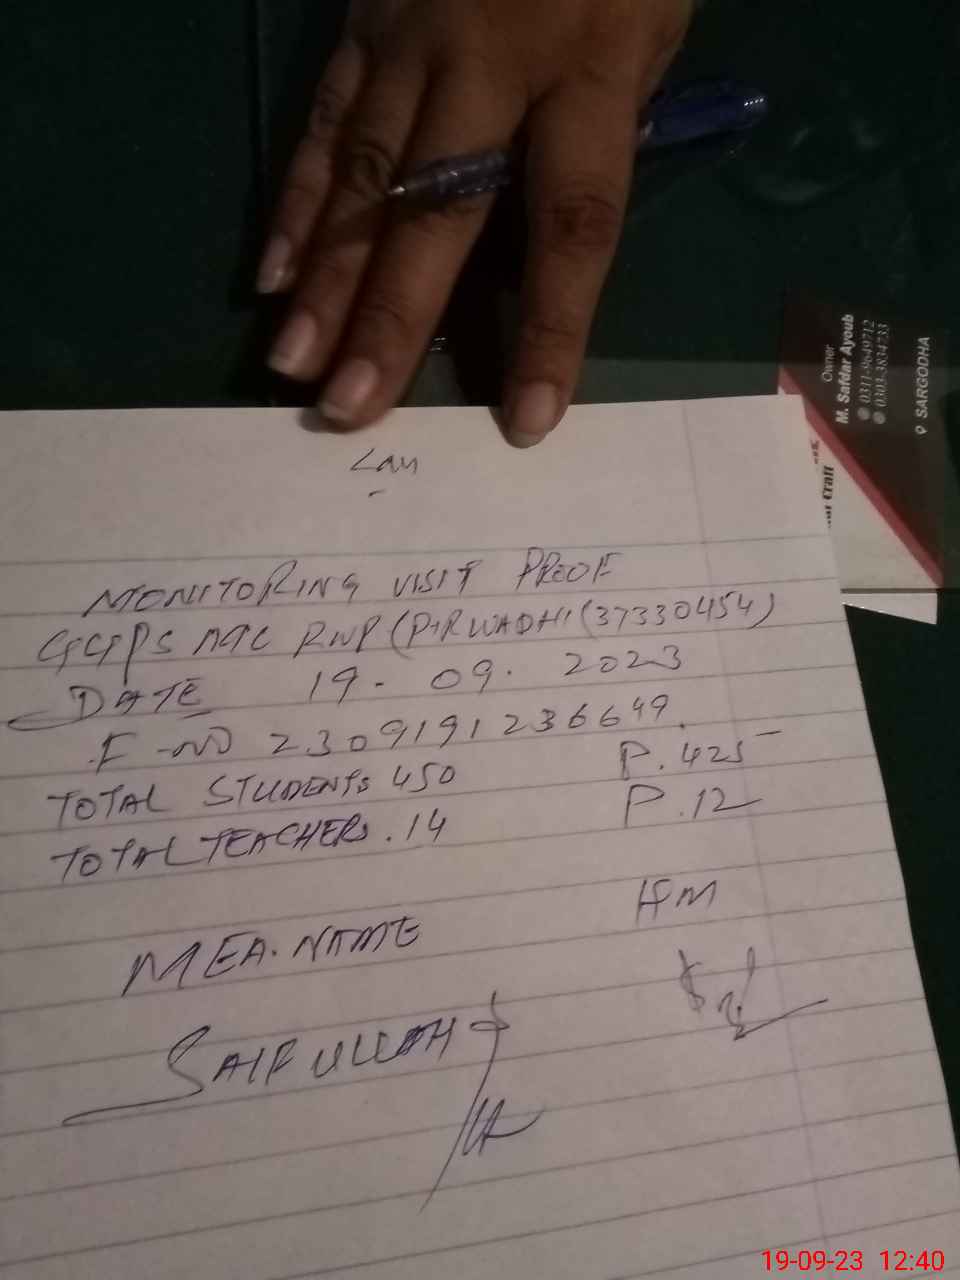 MONITORING VISIT PROOF
GGPS MC RWP (PIRWADHI (37330454)
DATE 19-09.2023
F-NO 2309191236649.
TOTAL STUDENTS 450 P.425
TOTAL TEACHERS.14 P.12
MEA.NAME HM
SAIFULLAH
Owner
M. Safdar Ayoub
0303-3834733
SARGODHA
Craft
19-09-23 12:40